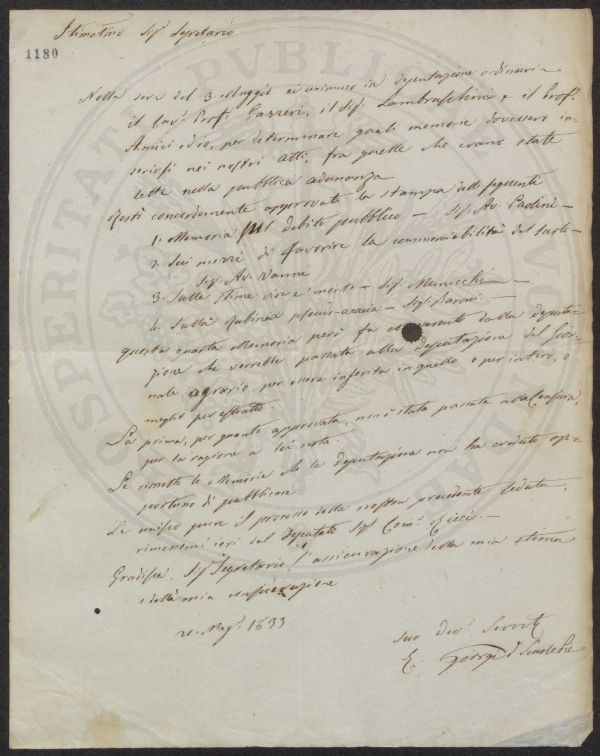 Stimatmo Sigr Segretario
1180
Nella sera del 3 Maggio ci unimmo in deputazione ordinaria
il Cavr Profr Gazzeri, il Sigr Lambruschini e il Profr
Amici ed io, per determinare quali memorie dovessero in-
serirsi nei nostri atti, fra quelle che erano state
lette nella pubblica adunanza
Restò concordemente approvata la stampa delle seguenti
1. Memoria sul debito pubblico — Sigr Av. Paolini —
2. Sui mezzi di favorire la commerciabilità del suolo —
Sigr Av. Vanni
3. Sulle stime vive e morte — Sigr
4. Sulla Robinia pseudo-acacia — Sigr Baroni —
questa quarta Memoria però fu convenuto dalla deputa-
zione che verrebbe passata alla deputazione del Gior-
nale agrario, per essere inserita in quello o per intero, o
meglio per estratto.
La prima, per quanto approvata, non è stata passata alla Censura,
per la ragione a lei nota.
Le rimetto le Memorie che la deputazione non ha creduto op-
portuno di pubblicare
Le unisco pure il processo della nostra precedente seduta,
rimessomi ieri dal Deputato Sigr
Gradisca, Sigr Segretario, l'assicurazione della mia stima
e della mia considerazione
Magr 1833
Suo devo Servitr
E.